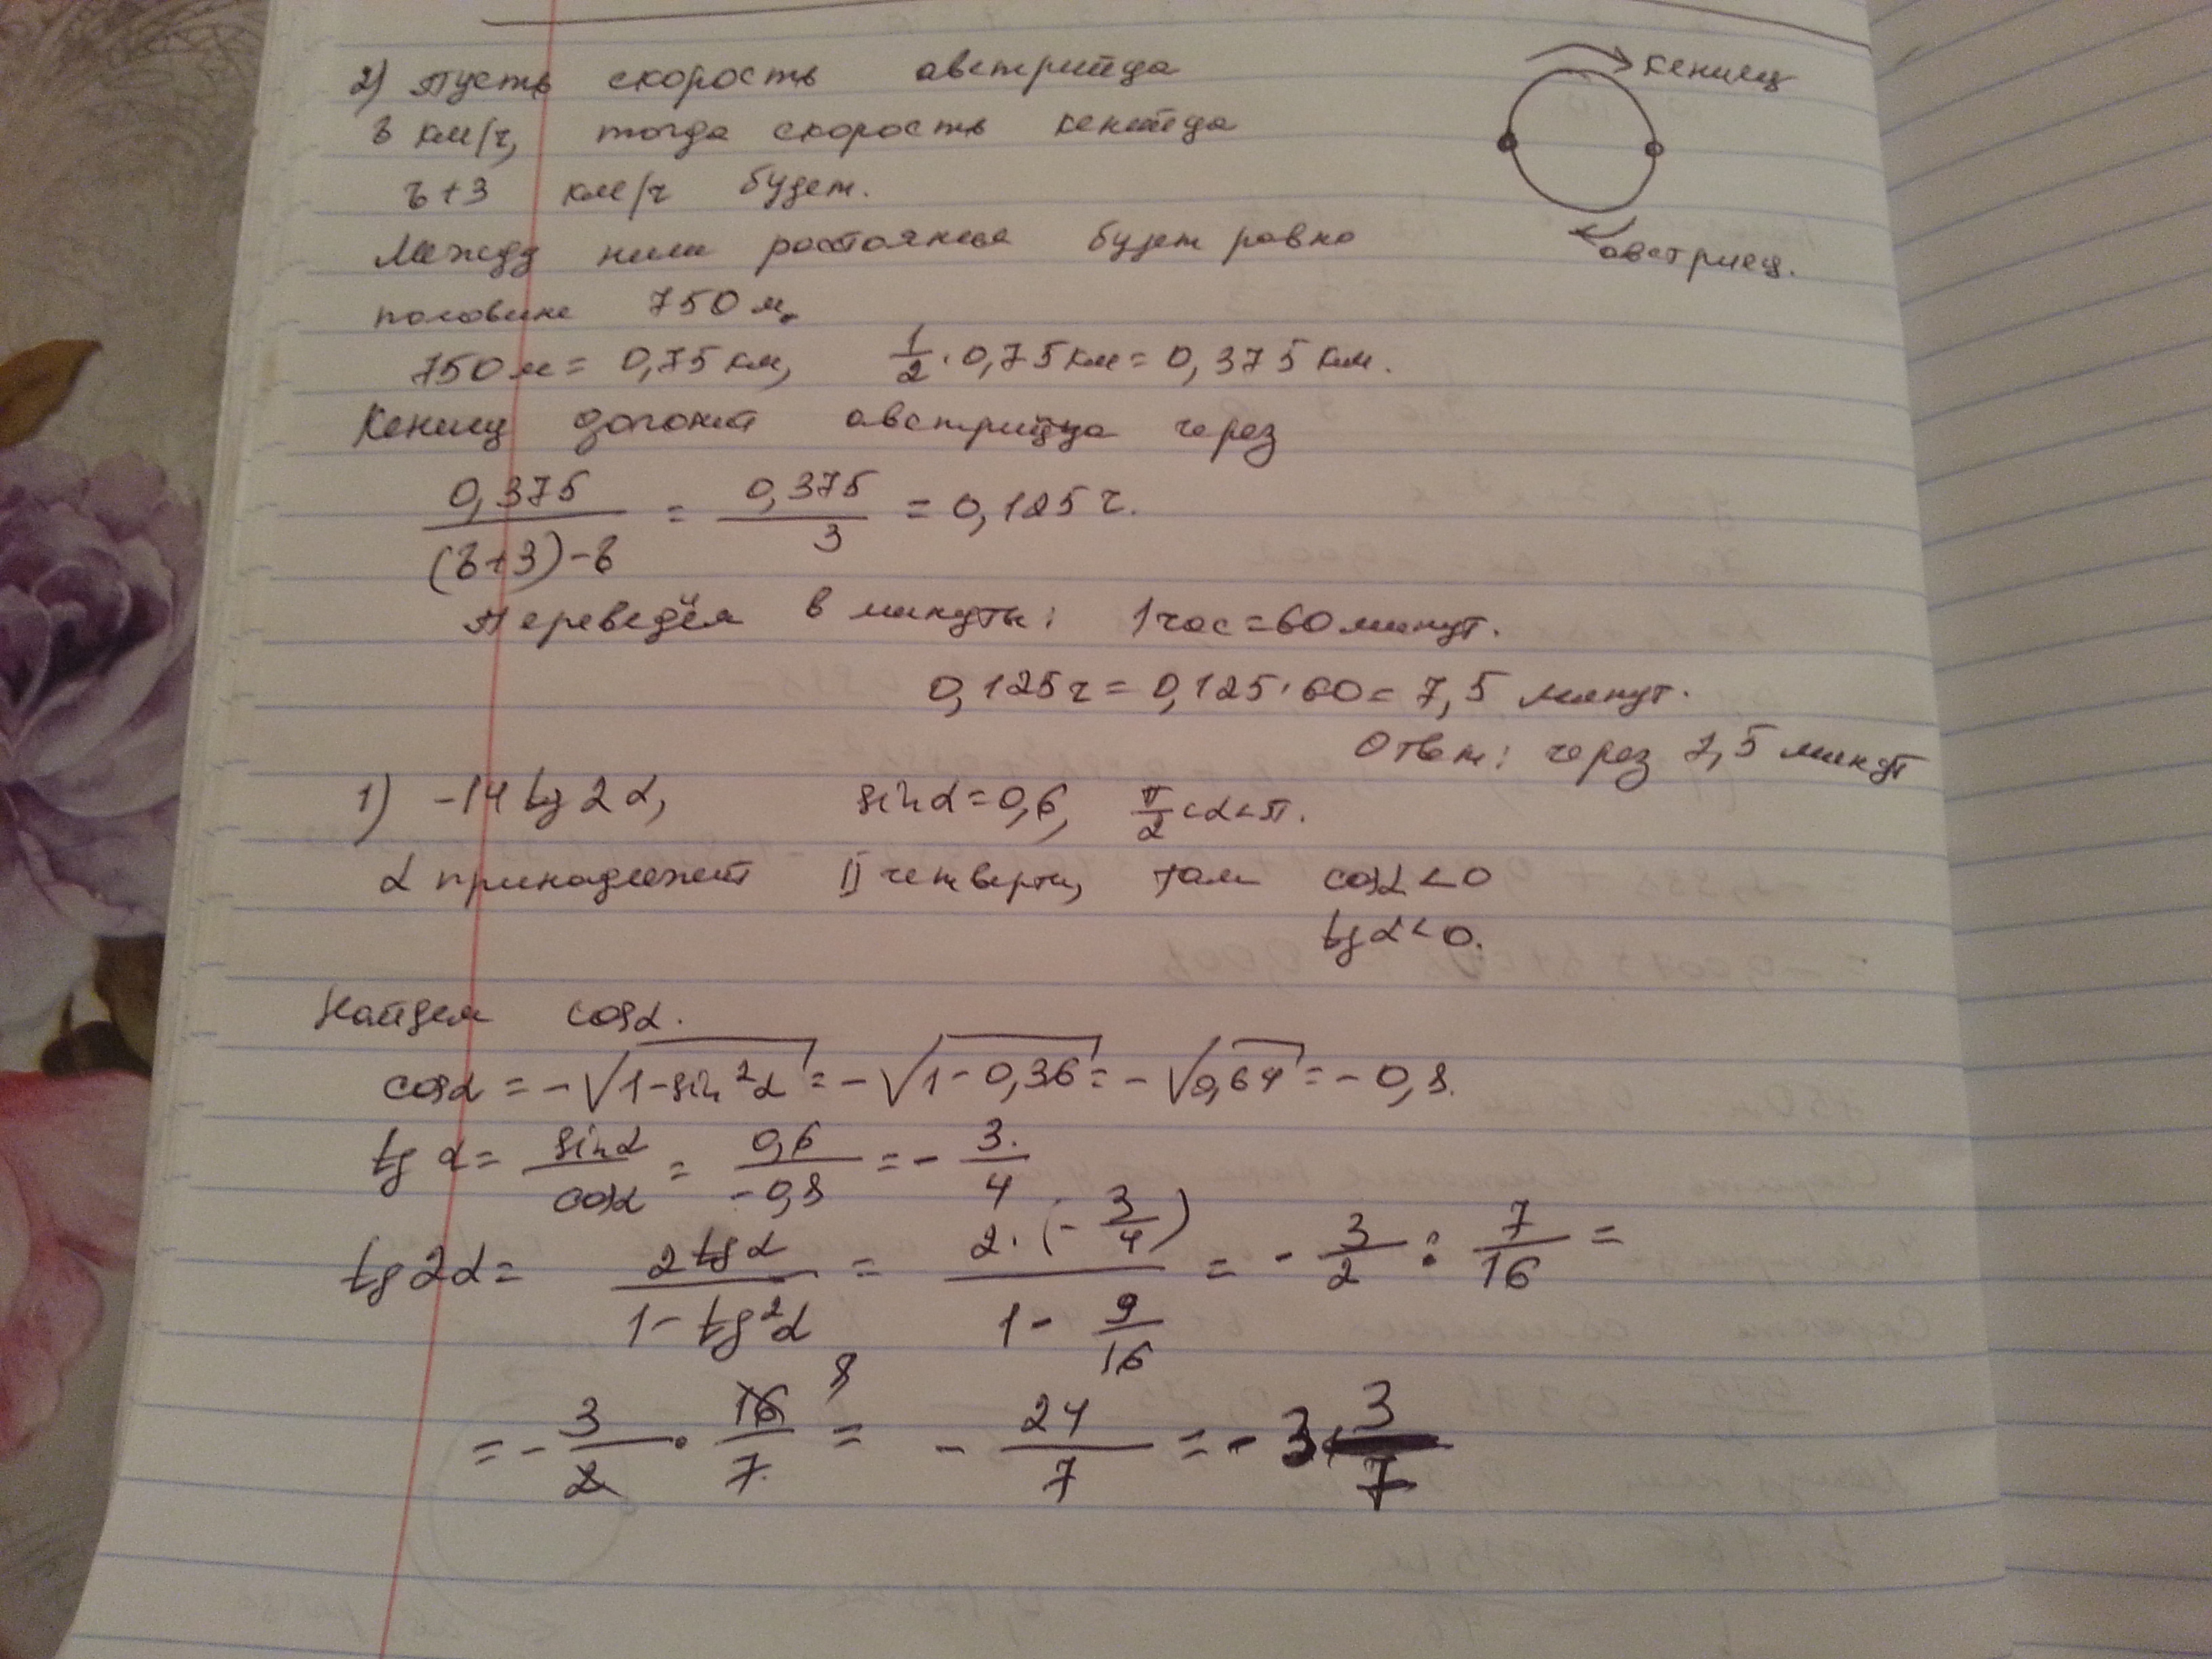 2) Пусть скорость австрийца
v км/ч, тогда скорость кенийца
v+3 км/ч будет.
Кениец
австриец.
Между ними растояние будет равно
половине 750 м.
750 м = 0,75 км, 1/2 · 0,75 км = 0,375 км.
Кениец догонит австрийца через
0,375/((v+3)-v) = 0,375/3 = 0,125 ч.
Переведём в минуты: 1 час = 60 минут.
0,125 ч = 0,125 · 60 = 7,5 минут.
Ответ: через 7,5 минут
1) -14 tg 2α, sin α = 0,6, π/2 < α < π.
α принадлежит II четверти, там cos α < 0
tg α < 0.
Найдем cos α.
cos α = -√(1-sin²α) = -√(1-0,36) = -√(0,64) = -0,8.
tg α = sin α/cos α = 0,6/-0,8 = -3/4
tg 2α = 2 tg α/(1-tg²α) = 2·(-3/4)/(1-9/16) = -3/2 : 7/16 =
= -3/2 · 16/7 8 = -24/7 = -3 3/7